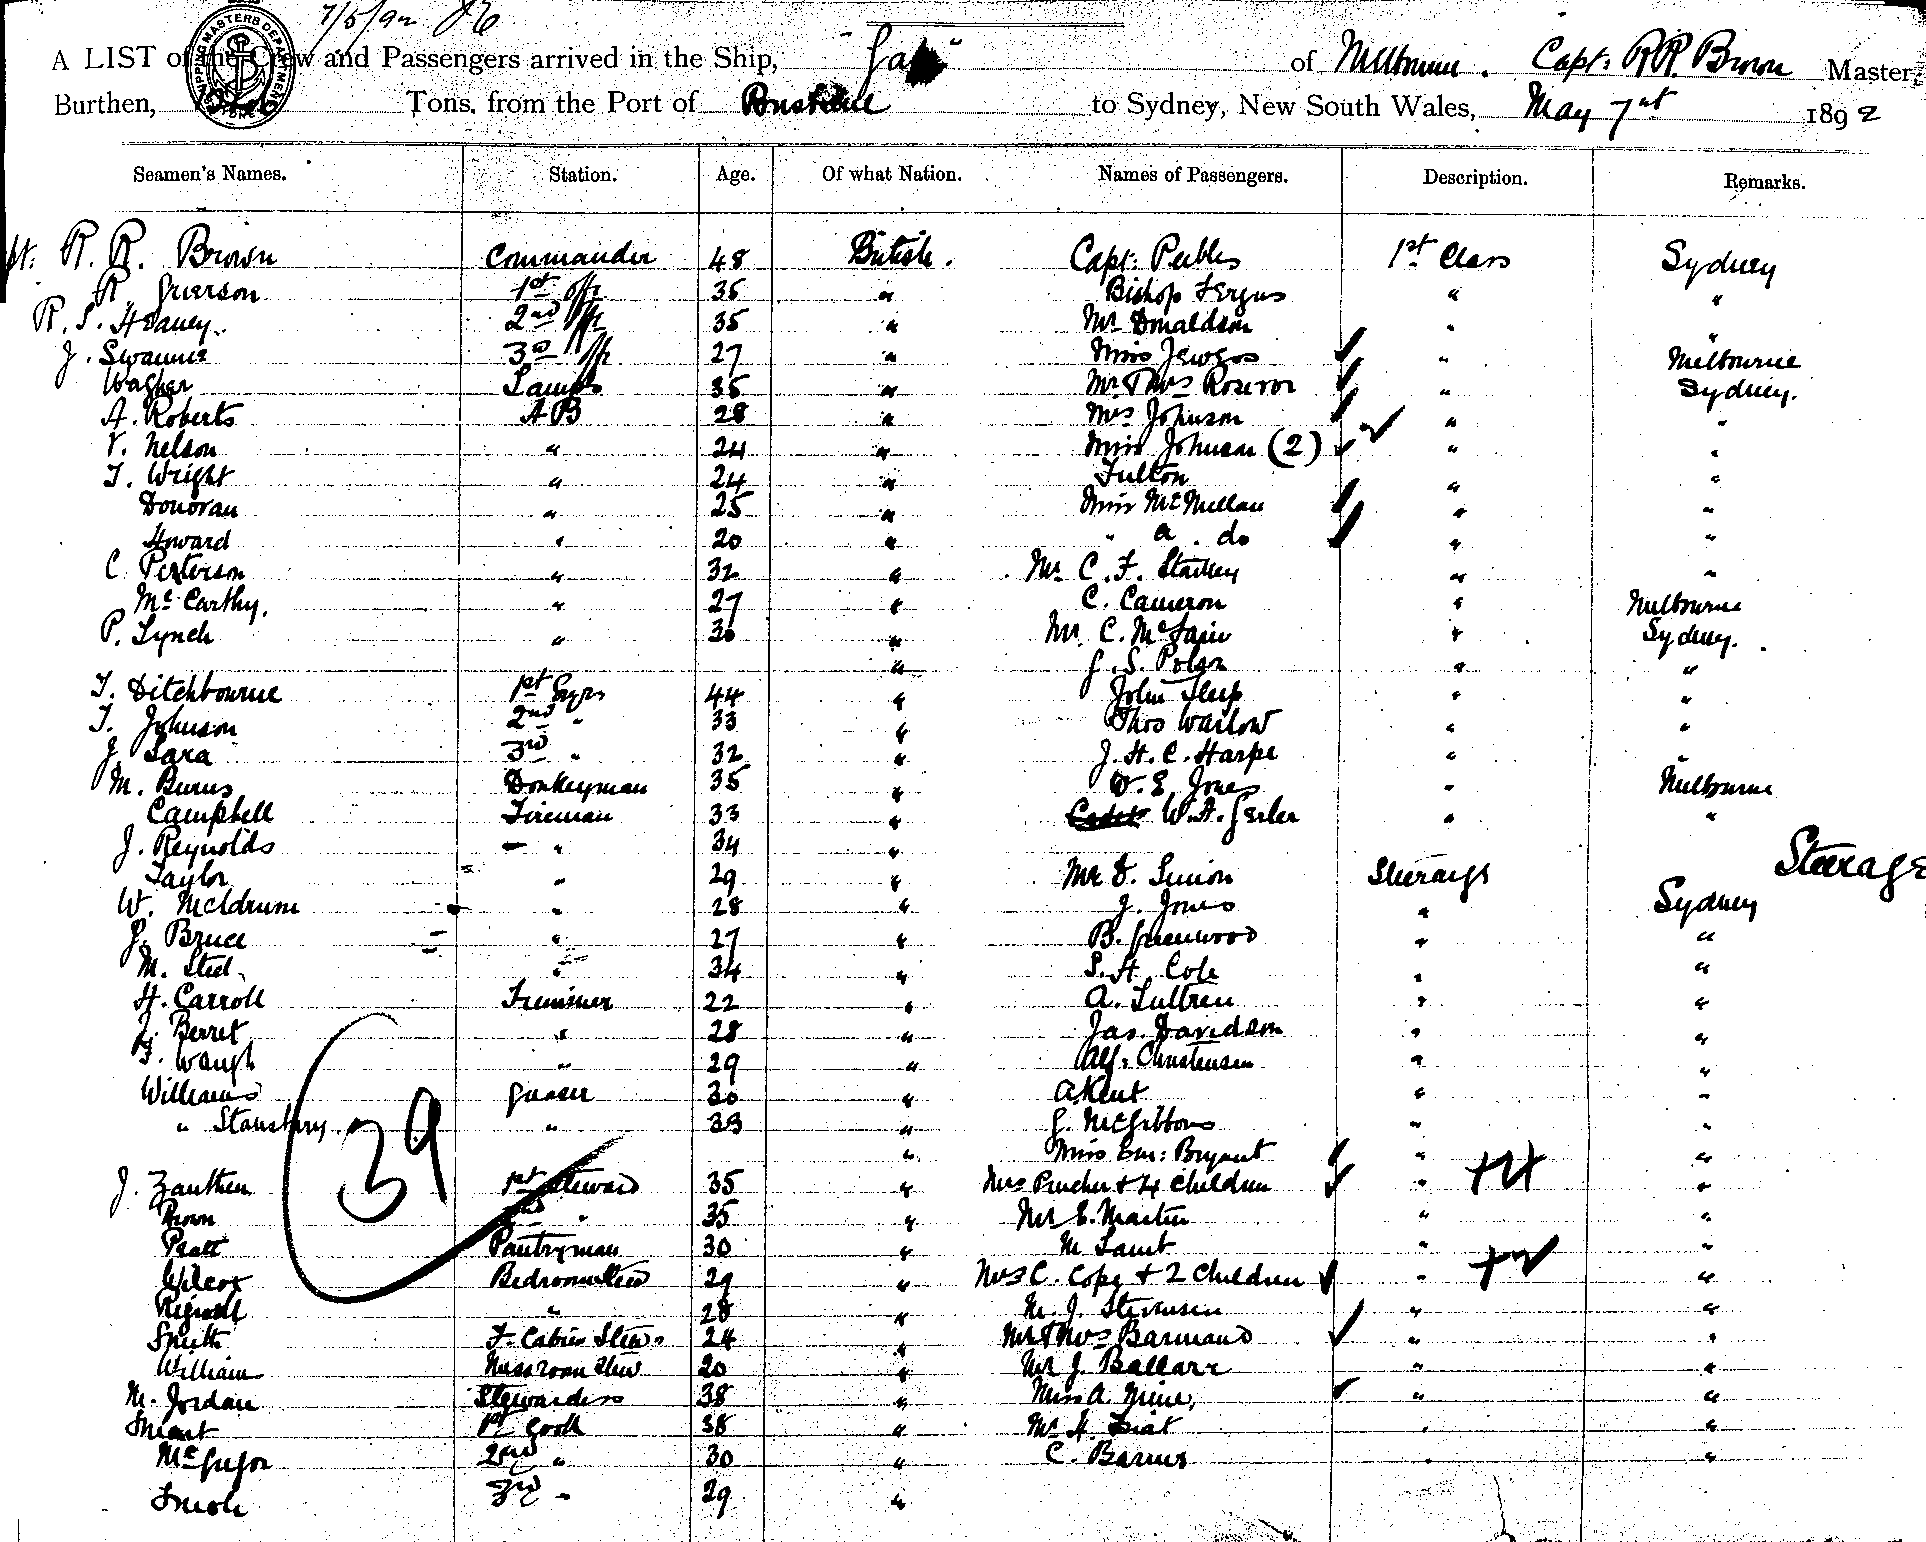 7/5/92
A LIST of the Crew and Passengers arrived in the Ship, of Melbourne. Capt: R R. Brown Master,
Burthen, Tons, from the Port of Brisbane to Sydney, New South Wales, May 7th 1892
Seamen's Names. Station. Age. Of what Nation. Names of Passengers. Description. Remarks.
R. R. Brown Commander 48 British. Capt: Peebles 1st Class Sydney
R. Grierson 1st offr 35 " Bishop Fergus " "
R. S. Heaney. 2nd offr 35 " Mr Donaldson " "
J. 3rd offr 27 " Miss " Melbourne
Wagner Lamps 35 " Mr Thos " Sydney.
A. Roberts AB 28 " Mrs Johnson " "
V. Nelson " 24 " Miss Johnson (2) " "
T. Wright " 24 " Fulton " "
Donovan " 25 " Miss McMillan " "
Howard " 20 " " a. do " "
C Peterson " 32 " Mr C. F. " "
McCarthy. " 27 " C. Cameron " Melbourne
P. Lynch " 30 " Mr C. " Sydney.
" J. S. Polson " "
T. Ditchbourne 1st 44 " John Sleep " "
T. Johnson 2nd " 33 " Thos Warlow " "
J. Sara 3rd " 32 " J. H. C. Harpe " "
M. Burns Donkeyman 35 " W. E. Jones " Melbourne
Campbell Fireman 33 " W. A. " "
J. Reynolds " 34 "
Steerage
Taylor " 29 " Mr Steerage
W. Meldrum " 28 " J. Jones " Sydney
J. Bruce " 27 " B. Greenwood " "
M. Steel " 34 " S. H. Cole " "
H. Carroll Trimmer 22 " A. " "
J. Berret " 28 " Jas. Davidson " "
F. Waugh " 29 " Alf. Christensen " "
Williams Greaser 30 " A Kent " "
" Stansbury " 33 " G. McGibbons " "
39
" Miss Em: Bryant " "
J. Zanthen 1st Steward 35 " Mrs + 4 Children " +4 "
Brown " 35 " Mr E. Martin " "
Pratt Pantryman 30 " M " "
Wilcox Bedroom Stew 29 " Mrs C. Cope + 2 Children " +2 "
" 28 " M. J. Stevensen " "
Smith F. Cabin Stew 24 " Mr Thos " "
William Messroom Stew 20 " Mr J. " "
M. Jordan Stewardess 38 " Miss A. " "
1st Cook 38 " Mr H. " "
McGregor 2nd " 30 " C. "
3rd " 29 "